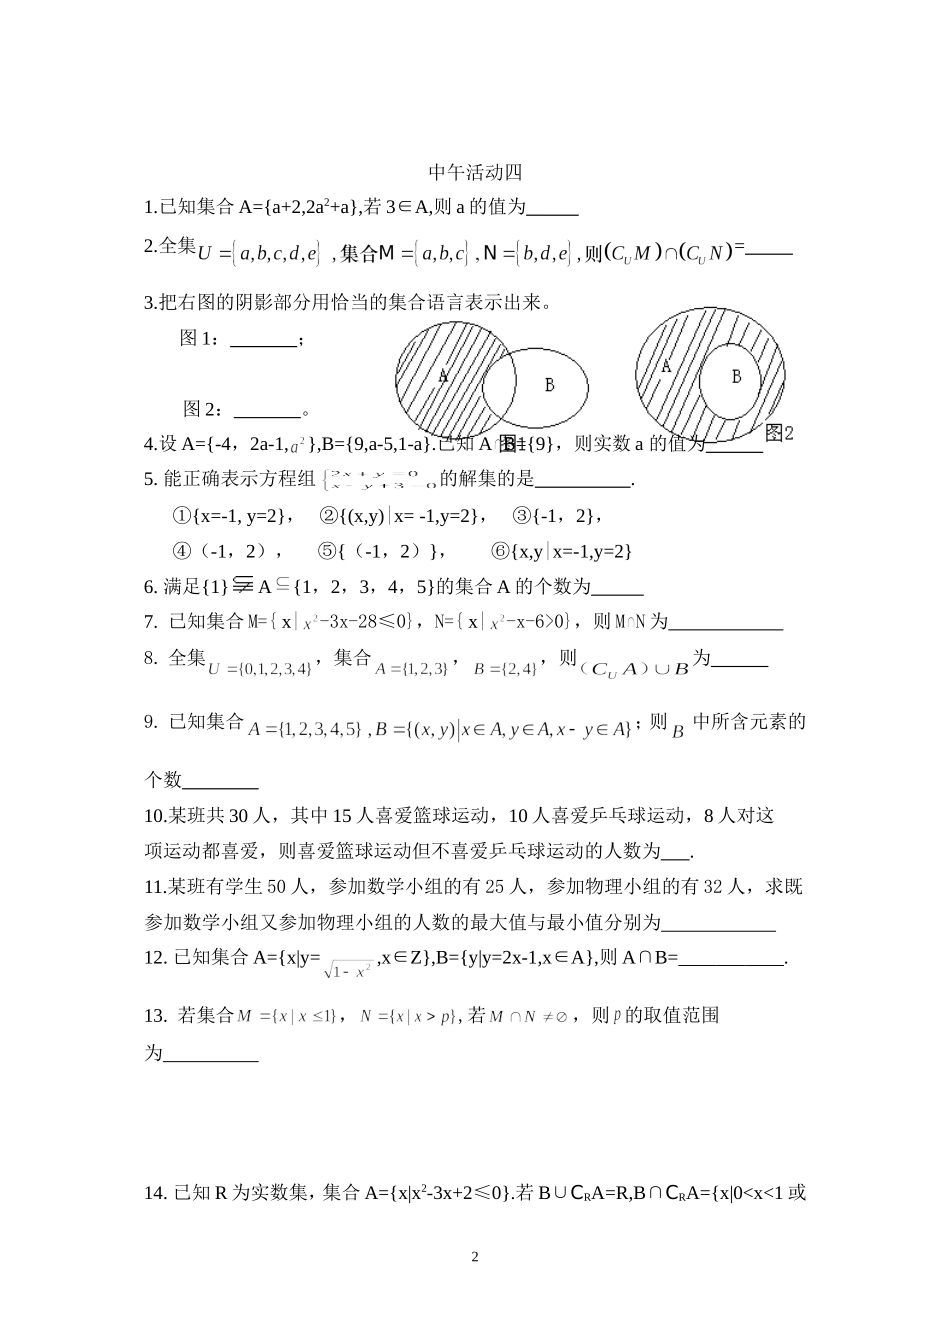 中午活动四
1.已知集合 A={a+2,2a²+a},若 3∈A,则 a 的值为_____
2.全集U={a,b,c,d,e},集合M={a,b,c},N={b,d,e},则(C_U M)∩(C_U N)=_____
3.把右图的阴影部分用恰当的集合语言表示出来。
图 1：_______；
A B
A B
图 2：_______。
图1
图2
4.设 A={-4，2a-1,a²},B={9,a-5,1-a}.已知 A∩B={9}，则实数 a 的值为______
5. 能正确表示方程组 的解集的是__________.
①{x=-1, y=2}， ②{(x,y)|x= -1,y=2}， ③{-1，2}，
④（-1，2）， ⑤{（-1，2）}， ⑥{x,y|x=-1,y=2}
6. 满足{1}⫋A⊆{1，2，3，4，5}的集合 A 的个数为______
7. 已知集合 M={ x|x²-3x-28≤0}，N={ x|x²-x-6>0}，则 M∩N 为____________
8. 全集U={0,1,2,3,4}，集合A={1,2,3}，B={2,4}，则(C_U A)∪B为______
9. 已知集合A={1,2,3,4,5},B={(x,y)|x∈A,y∈A,x-y∈A}；则B中所含元素的
个数________
10.某班共 30 人，其中 15 人喜爱篮球运动，10 人喜爱乒乓球运动，8 人对这
项运动都喜爱，则喜爱篮球运动但不喜爱乒乓球运动的人数为___.
11.某班有学生 50 人，参加数学小组的有 25 人，参加物理小组的有 32 人，求既
参加数学小组又参加物理小组的人数的最大值与最小值分别为____________
12. 已知集合 A={x|y=√(1-x²),x∈Z},B={y|y=2x-1,x∈A},则 A∩B=___________.
13. 若集合M={x|x≤1}，N={x|x>p},若M∩N≠∅，则p的取值范围
为__________
14. 已知 R 为实数集，集合 A={x|x²-3x+2≤0}.若 B∪C_R A=R,B∩C_R A={x|0<x<1 或
2